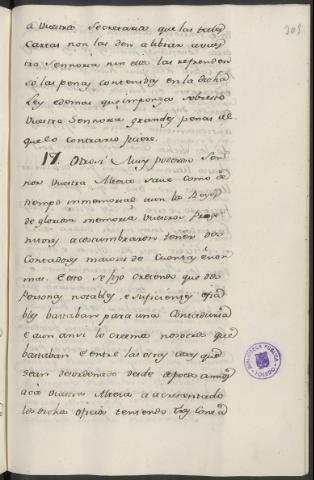 305
à Vuestros Secretarios que las tales
Cartas non las den a librar a vues
tra Sennoria nin ellos las refrenden
so las penas contenidas en la dicha
Ley edemas que imponga sobresto
Vuestra Sennoria grandes penas al
que lo contrario ficiere.
17. Otrosi Muy poderoso Sen
nor Vuestra Alteza save como de
tiempo inmemorial aun los Reyes
de gloriosa memoria Vuestros Proge
nitores acostumbraron tener dos
Contadores maiores de Cuentas é non
mas. E esto se fizo creiendo que dos
Personas notables, e suficientes, e fia
bles bastaban para una Contaduria
e aun ansi lo creemos nosotros que
bastaban e entre las otras cosas que
sean desordenado desde a pocos annos
acà Vuestra Alteza a acrecentado
los dichos oficios teniendo tres Conta
BIBLIOTECA PUBLICA
TOLEDO